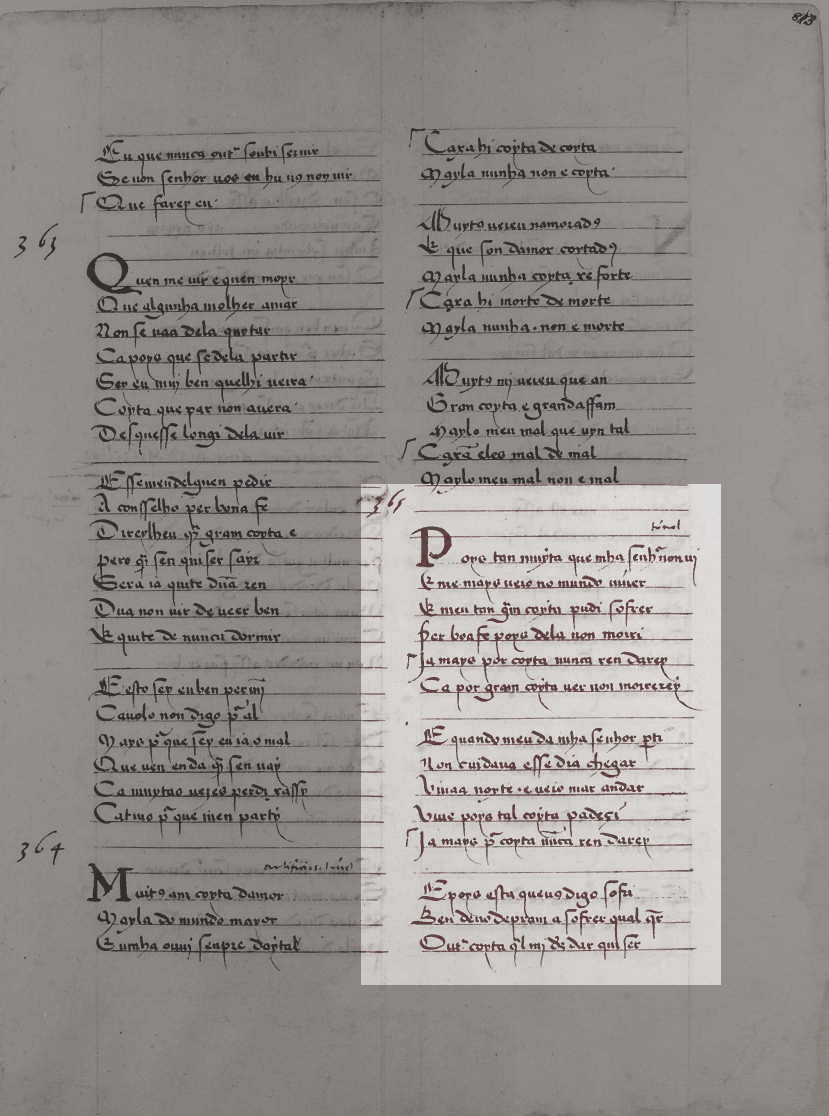 813
Eu que nunca outr̃ soubi seruir
Se non senhor uos en hu u9 non uir
Que farey eu
363
Quen me uir e quen moyr
Que algunha molher amar
Non se uaa dela quytar
Ca poys que se dela partir
Ser eu muj ben quelhi ueira
Coyta que par non auera
Desquesse longi dela uir
Essemendelguen pedir
A consselho per bona fe
Direylheu q̃ gram coyta e
pero q̃ sen qui ser sayr
Sera ia quite dũa ren
Dua non uir de ueer ben
E quite de nunca dormir
E esto sey eu ben per mj̃
Cauolo non digo p̃ al
Mays p̃ que sey eu ia o mal
Que uen enda q̃ sen uay
Ca muytas uezes perdi
Catiuo p̃ que men party
364
Muit9 am coyta damor
Mayla do mundo mayor
E umha ouuj senpre doytal
Cara hi coyta de coyta
Mayla minha non e coyta
Muyt9 ueieu namorad9
E que son damor coytad9
Mayla minha coyta xe forte
Cara hi morte de morte
Mayla minha non e morte
Muyt9 mj ueieu que an
Gran coyta e grandaffam
Maylo meu mal que uyn tal
Cara eles mal de mal
Maylo meu mal non e mal
365
tornel
Poys tan muyta que mha senh̃ non uj
E me mays ueio no mundo uiuer
E meu tan grm̃ coyta pudi sofrer
Per boa fe poys dela non moiri
Ja mays por coyta nunca ren darey
Ca por gram coyta uer non moirerey
E quando meu da mha senhor p̃ti
Non cuidaua esse dia chegar
Viuaa norte e ueio mar andar
Viue poys tal coyta padeçi
Ja mays p̃ coyta nũca ren darey
E poys esta queu9 digo sofri
Ben deuo de pram a sofrer qual q̃r
Outr̃ coyta q̃l mj d̃s dar quiser